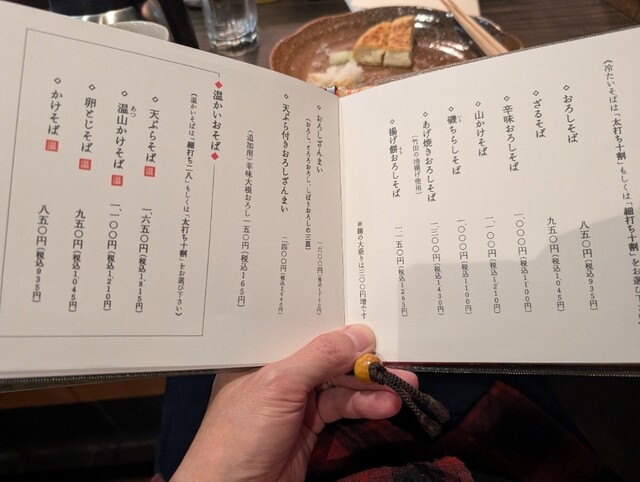 《冷たいそばは「太打ち十割」もしくは「細打ち十割」をお選び
◇おろしそば 八五〇円(税込935円)
◇ざるそば 九五〇円(税込1045円)
◇辛味おろしそば 一、〇〇〇円(税込1100円)
◇山かけそば 一、一〇〇円(税込1210円)
◇磯ちらしそば 一、〇〇〇円(税込1100円)
◇あげ焼きおろしそば 一、三〇〇円(税込1430円)
(竹田の油揚げ使用)
◇揚げ餅おろしそば 一、一五〇円(税込1265円)
もち
※麺の大盛りは三〇〇円増です
◇おろしざんまい 一、六〇〇円(税込1760円)
(おろし、とろろおろし、しぼりおろしの三昧)
◇天ぷら付きおろしざんまい 二、四〇〇円
(追加用)辛味大根おろし 一五〇円(税込165円)
◆温かいおそば◆
《温かいそばは「細打ち二八」もしくは「太打ち十割」をお選び下さい》
◇天ぷらそば 温 一、六五〇円(税込1,815円)
◇温山かけそば 温 一、一〇〇円(税込1210円)
あつ
◇卵とじそば 温 九五〇円(税込1045円)
◇かけそば 温 八五〇円(税込935円)